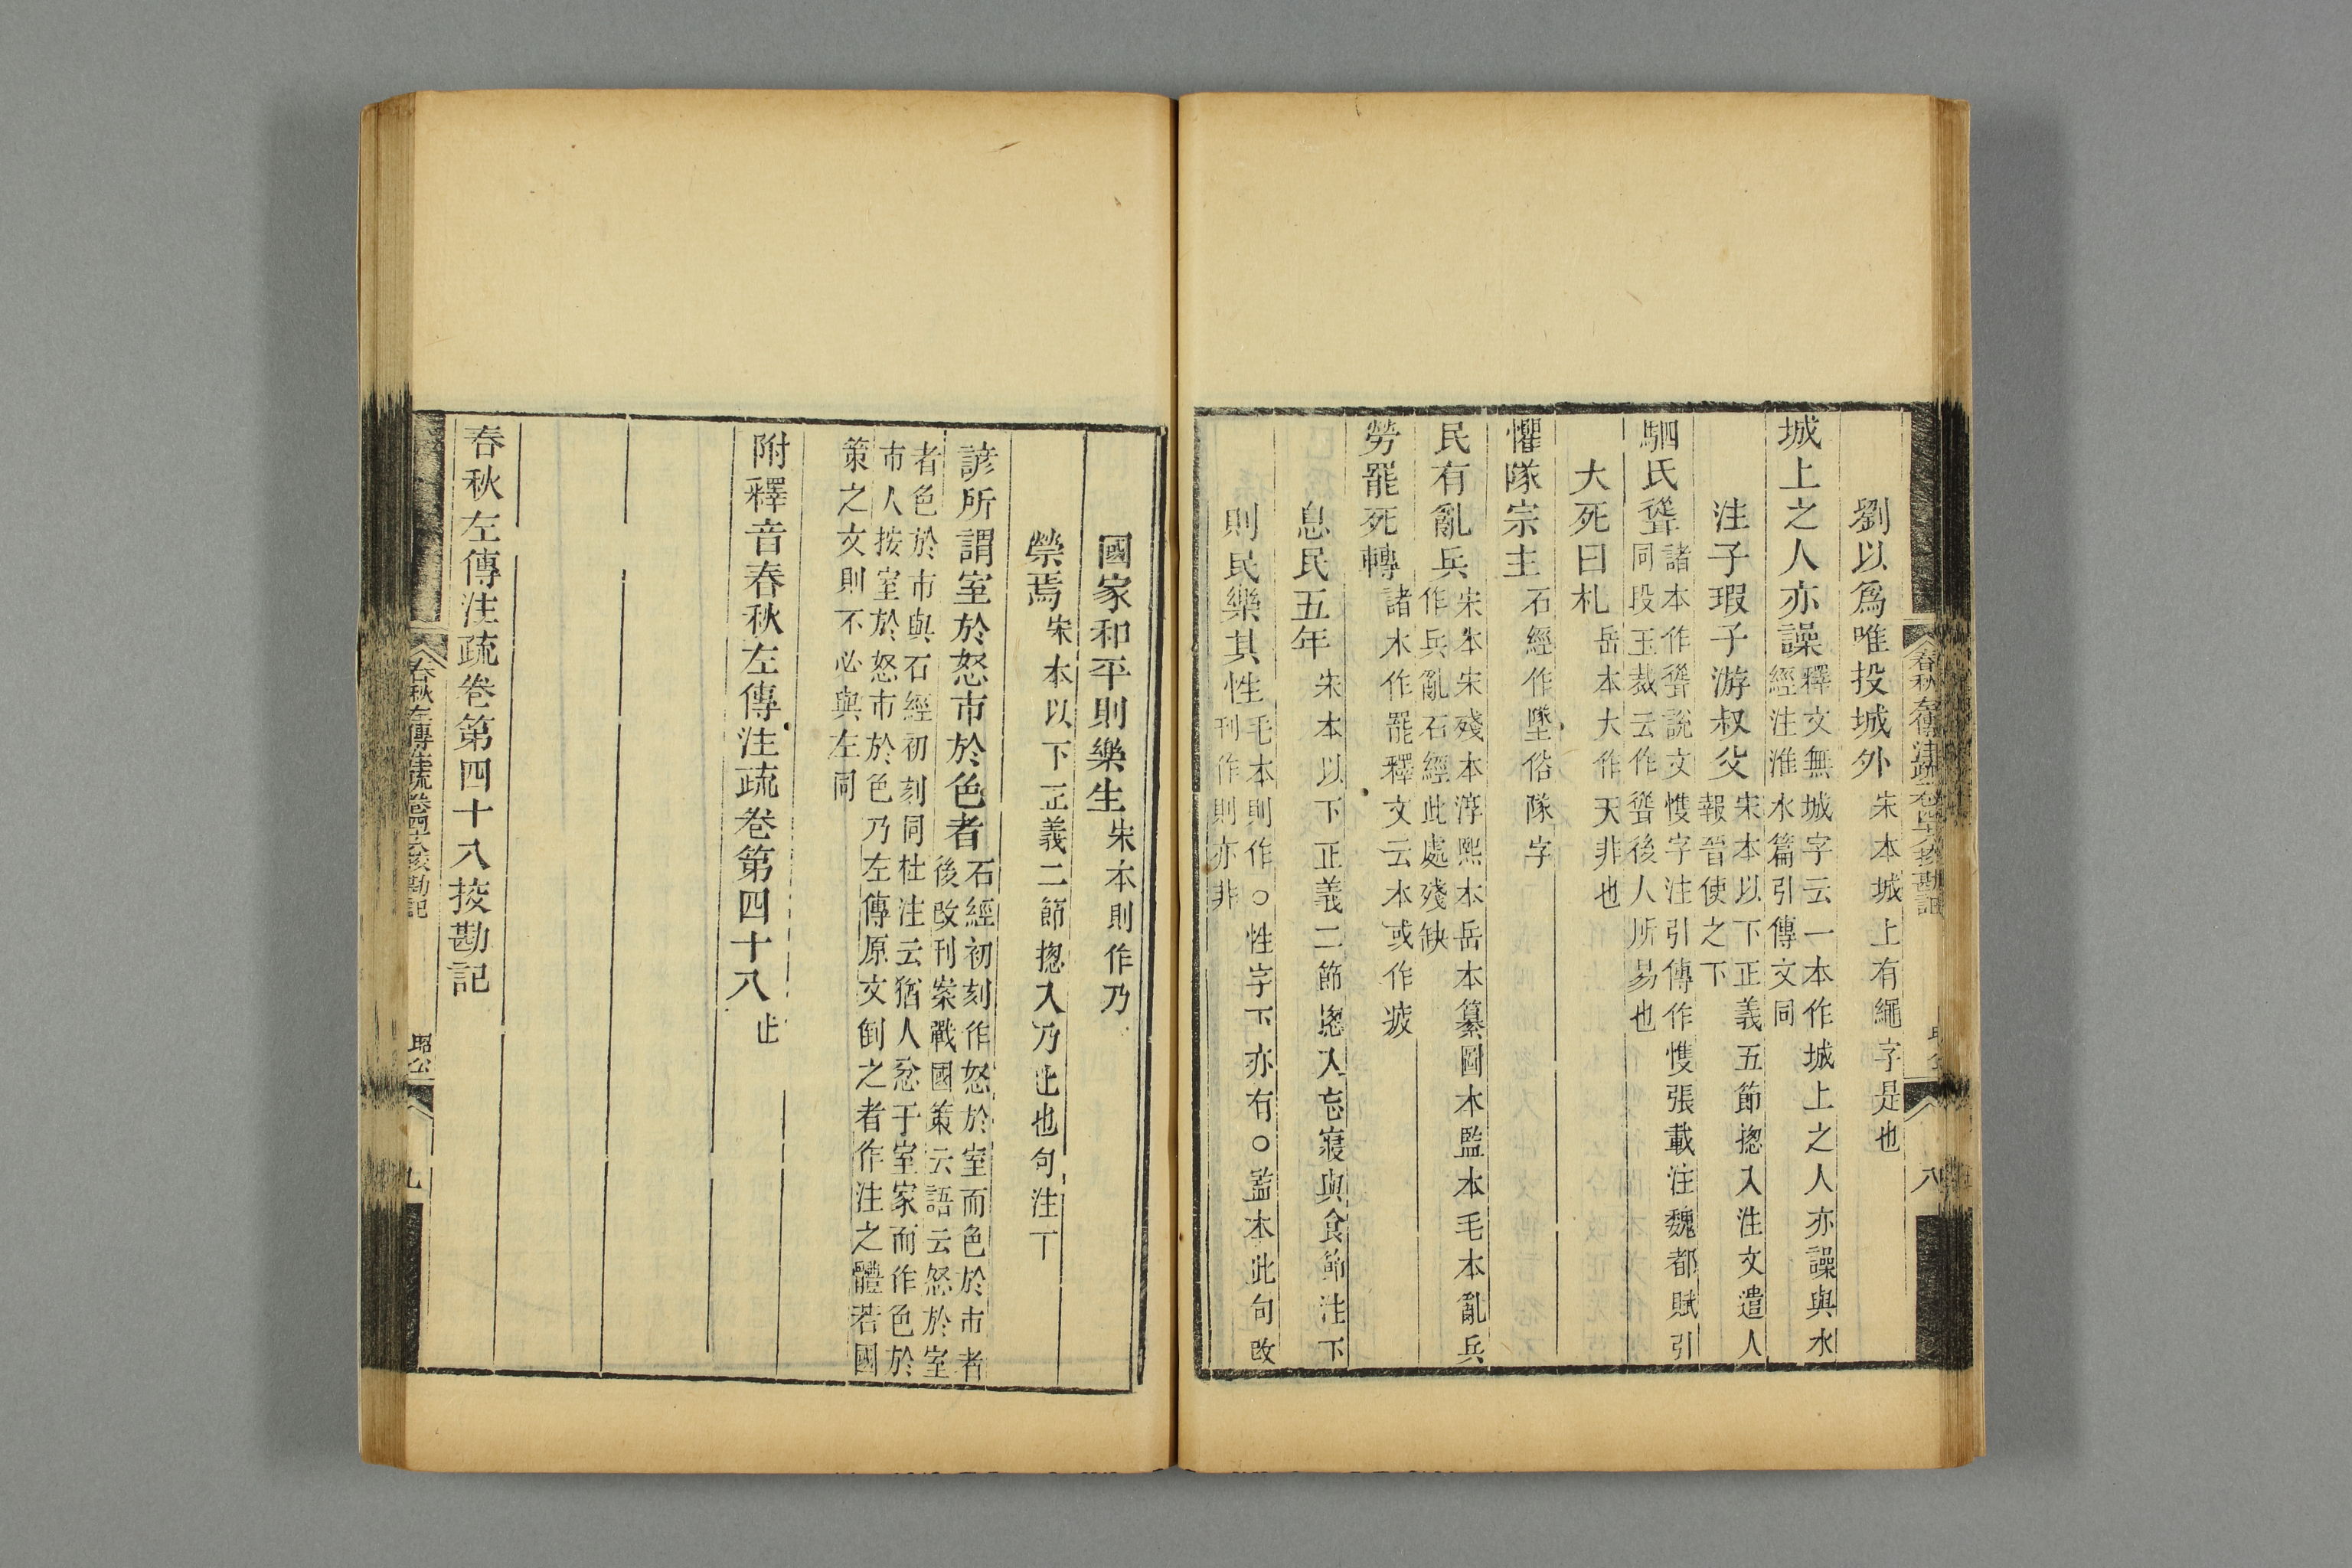 劉以爲唯投城外宋本城上有繩字是也
城上之人亦譟釋文無城字云一本作城上之人亦譟與水
經注淮水篇引傳文同
注子瑕子游叔父宋本以下正義五節揔入注文遣人
報晉使之下
駟氏聳諸本作聳說文愯字注引傳作愯張載注魏都賦引
同段玉裁云作聳後人所易也
大死曰札岳本大作天非也
懼隊宗主石經作墜俗隊字
民有亂兵宋本宋殘本淳熙本岳本纂圖本監本毛本亂兵
作兵亂石經此處殘缺
勞罷死轉諸本作罷釋文云本或作疲
息民五年宋本以下正義二節揔入忘寢與食節注下
則民樂其性毛本則作○性字下亦有○葢本此句改
刊作則亦非
春秋左傳注疏卷四十八挍勘記
八
國家和平則樂生宋本則作乃
榮焉宋本以下正義二節揔入乃止也句注下
諺所謂室於怒市於色者石經初刻作怒於室而色於市者
後改刊案戰國策云語云怒於室
者色於市與石經初刻同杜注云猶人忿于室家而作色於
市人按室於怒市於色乃左傳原文倒之者作注之體若國
策之文則不必與左同
附釋音春秋左傳注疏卷第四十八止
春秋左傳注疏卷第四十八挍勘記
春秋左傳注疏卷四十八挍勘記
昭公
九